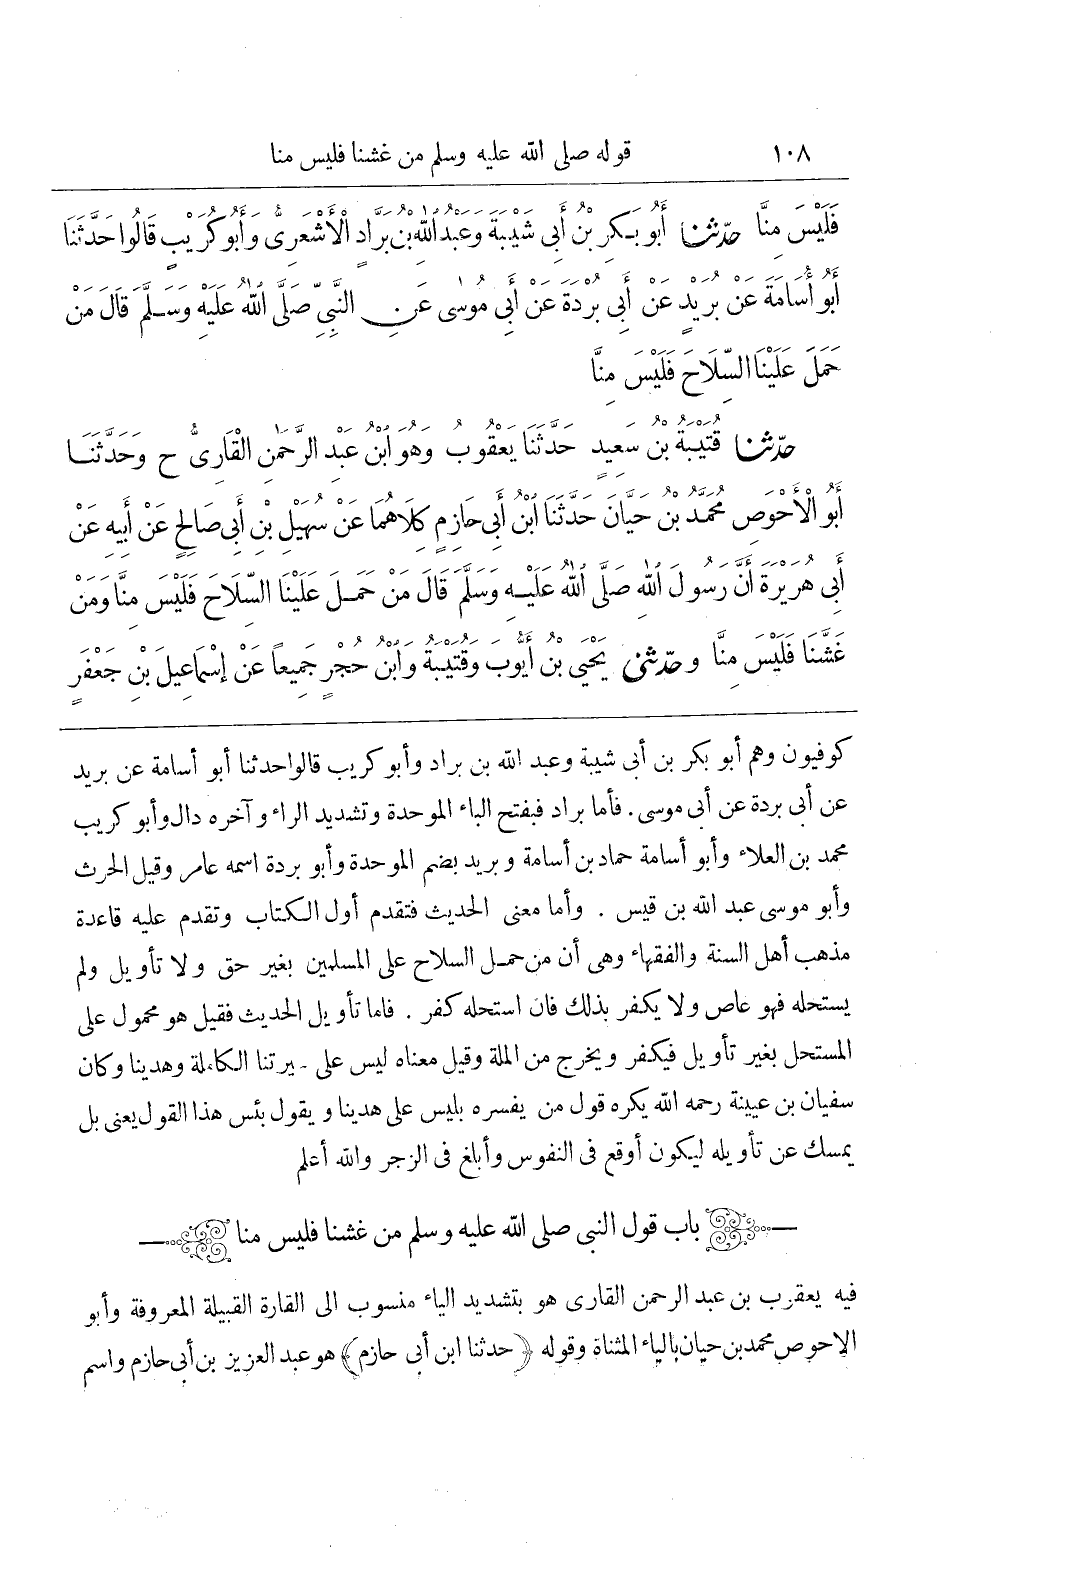 ١٠٨ قوله صلى الله عليه وسلم من غشنا فليس منا
فَلَيْسَ مِنَّا حدّثنا أَبُو بَكْرِ بْنُ أَبِي شَيْبَةَ وَعَبْدُ اللهِ بْنُ بَرَّادٍ الْأَشْعَرِىُّ وَأَبُو كُرَيْبٍ قَالُوا حَدَّثَنَا
أَبُو أُسَامَةَ عَنْ بُرَيْدٍ عَنْ أَبِي بُرْدَةَ عَنْ أَبِي مُوسَى عَنِ النَّبِيِّ صَلَّى اللهُ عَلَيْهِ وَسَلَّمَ قَالَ مَنْ
حَمَلَ عَلَيْنَا السِّلَاحَ فَلَيْسَ مِنَّا
حدّثنا قُتَيْبَةُ بْنُ سَعِيدٍ حَدَّثَنَا يَعْقُوبُ وَهُوَ ابْنُ عَبْدِ الرَّحْمٰنِ الْقَارِىُّ ح وَحَدَّثَنَا
أَبُو الْأَحْوَصِ مُحَمَّدُ بْنُ حَيَّانَ حَدَّثَنَا ابْنُ أَبِي حَازِمٍ كِلَاهُمَا عَنْ سُهَيْلِ بْنِ أَبِي صَالِحٍ عَنْ أَبِيهِ عَنْ
أَبِي هُرَيْرَةَ أَنَّ رَسُولَ اللهِ صَلَّى اللهُ عَلَيْهِ وَسَلَّمَ قَالَ مَنْ حَمَلَ عَلَيْنَا السِّلَاحَ فَلَيْسَ مِنَّا وَمَنْ
غَشَّنَا فَلَيْسَ مِنَّا وحدّثنى يَحْيَى بْنُ أَيُّوبَ وَقُتَيْبَةُ وَابْنُ حُجْرٍ جَمِيعاً عَنْ إِسْمَاعِيلَ بْنِ جَعْفَرٍ
كوفيون وهم أبو بكر بن أبى شيبة وعبد الله بن براد وأبو كريب قالوا حدثنا أبو أسامة عن بريد
عن أبى بردة عن أبى موسى. فأما براد فبفتح الباء الموحدة وتشديد الراء وآخره دال وأبو كريب
محمد بن العلاء وأبو أسامة حماد بن أسامة وبريد بضم الموحدة وأبو بردة اسمه عامر وقيل الحرث
وأبو موسى عبد الله بن قيس . وأما معنى الحديث فتقدم أول الكتاب وتقدم عليه قاعدة
مذهب أهل السنة والفقهاء وهى أن من حمل السلاح على المسلمين بغير حق ولا تأويل ولم
يستحله فهو عاص ولا يكفر بذلك فان استحله كفر . فاما تأويل الحديث فقيل هو محمول على
المستحل بغير تأويل فيكفر ويخرج من الملة وقيل معناه ليس على سيرتنا الكاملة وهدينا وكان
سفيان بن عيينة رحمه الله يكره قول من يفسره بليس على هدينا ويقول بئس هذا القول يعنى بل
يمسك عن تأويله ليكون أوقع فى النفوس وأبلغ فى الزجر والله أعلم
باب قول النبى صلى الله عليه وسلم من غشنا فليس منا
فيه يعقوب بن عبد الرحمن القارى هو بتشديد الياء منسوب الى القارة القبيلة المعروفة وأبو
الاحوص محمد بن حيان بالياء المثناة وقوله ﴿حدثنا ابن أبى حازم﴾ هو عبد العزيز بن أبى حازم واسم